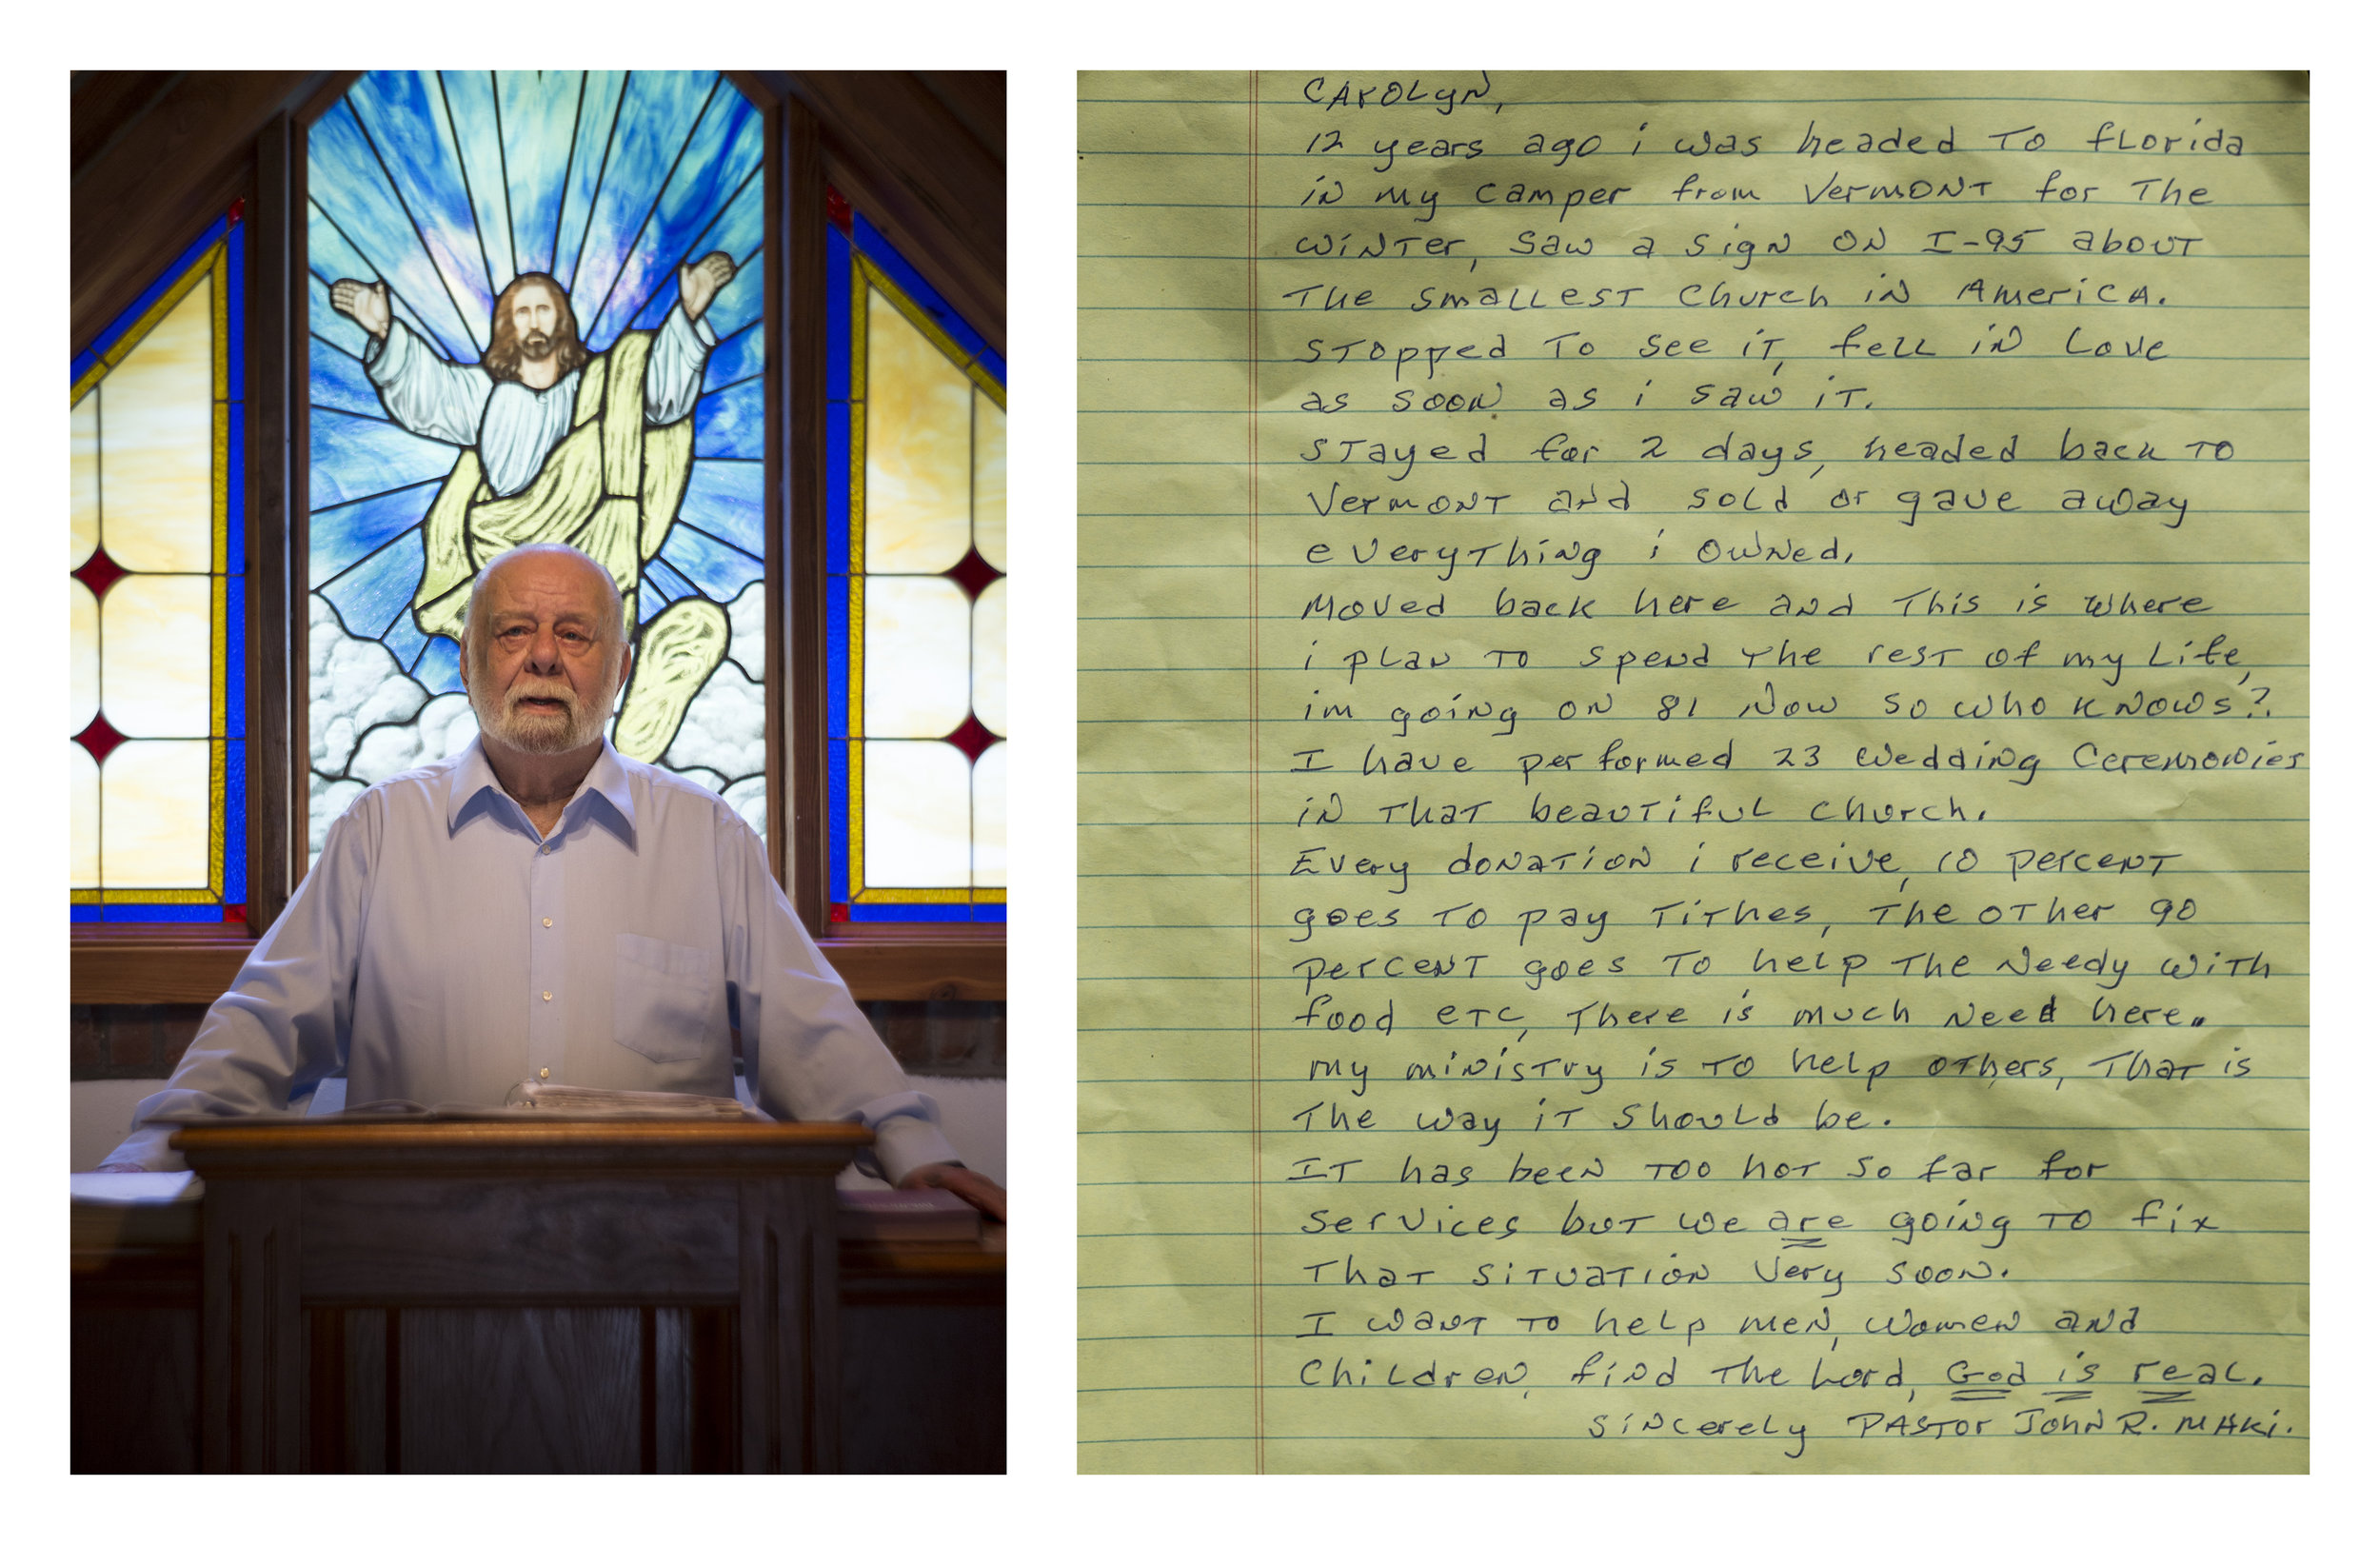 CAROLyN,
12 years ago i was headed To fLorida
in my camper from VermONT for The
WiNTer, Saw a Sign ON I-95 aboUT
The smaLLesT Church iN AmericA.
STopped To see iT, feLL iN Love
as sooN as i saw iT.
STayed for 2 days, headed back To
VermONT and soLd or gave away
everyThiNg i OwNed.
Moved back here and This is where
i pLaN To speNd The resT of my Life,
im goiNg ON 81 Now so who kNows?
I have performed 23 WeddiNg CeremoNies
iN ThaT beauTifuL church.
Every doNaTioN i receive, 10 perceNT
goes To pay TiThes, The oTher 90
perceNT goes To heLp The Needy wiTh
food eTc, There is much Need here.
my miNisTry is To heLp oThers, ThaT is
The way iT shouLd be.
IT has beeN Too hoT so far for
services buT we are goiNg To fix
ThaT siTuaTioN Very sooN.
I waNT To heLp meN, womeN and
ChiLdreN, fiNd The Lord, God is reaL.
SiNcereLy PASTor JohN R. MAKi.